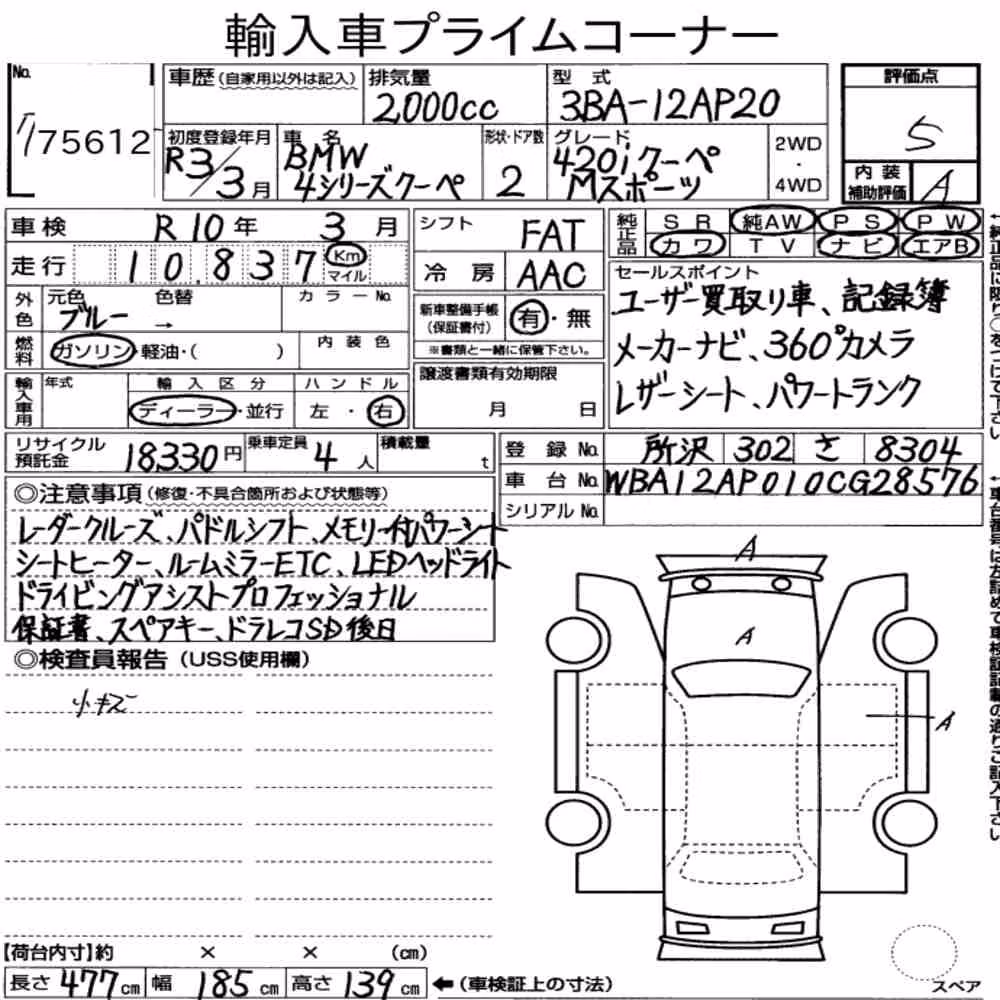 輸入車プライムコーナー
No.
75612
車歴 (自家用以外は記入)
排気量
2,000cc
型 式
3BA-12AP20
評価点
S
初度登録年月
R3/3月
車 名
BMW
4シリーズクーペ
形状・ドア数
2
グレード
420iクーペ
Mスポーツ
2WD
・
4WD
内 装
補助評価
A
車検 R10年 3月
走行 10,837 Km
マイル
シフト FAT
冷 房 AAC
純正品 SR 純AW PS PW
カワ TV ナビ エアB
外色 元色 色替 カラーNo.
ブルー →
燃料 ガソリン・軽油・( ) 内装色
新車整備手帳
(保証書付)
有・無
※書類と一緒に保管下さい。
セールスポイント
ユーザー買取り車、記録簿
メーカーナビ、360°カメラ
レザーシート、パワートランク
輸入車用 年式 輸入区分 ハンドル
ディーラー・並行 左・右
譲渡書類有効期限
月 日
リサイクル
預託金 18330円
乗車定員 4人
積載量 t
登 録 No. 所沢 302 さ 8304
車 台 No. WBA12AP010CG28576
シリアル No.
◎注意事項 (修復・不具合箇所および状態等)
レーダークルーズ、パドルシフト、メモリー付パワーシート
シートヒーター、ルームミラーETC、LEDヘッドライト
ドライビングアシストプロフェッショナル
保証書、スペアキー、ドラレコSD後日
◎検査員報告 (USS使用欄)
小キズ
A
A
A
【荷台内寸】約 × × (cm)
長さ 477cm 幅 185cm 高さ 139cm ←(車検証上の寸法)
スペア
↑純正品に限り○をつけて下さい
↑車台番号は左詰めで車検証記載の通りご記入下さい